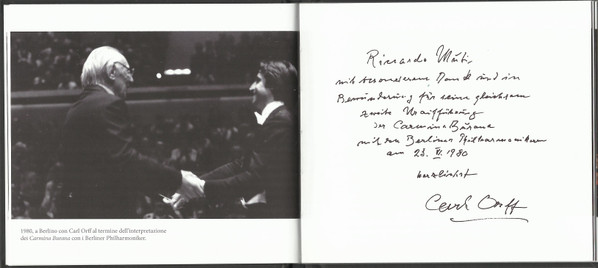 1980, a Berlino con Carl Orff al termine dell'interpretazione
dei Carmina Burana con i Berliner Philharmoniker.
Riccardo Muti
mit besonderem Dank und in
Bewunderung für seine gleichsam
zweite Uraufführung
der Carmina Burana
mit den Berliner Philharmonikern
am 23. IV. 1980
herzlichst
Carl Orff